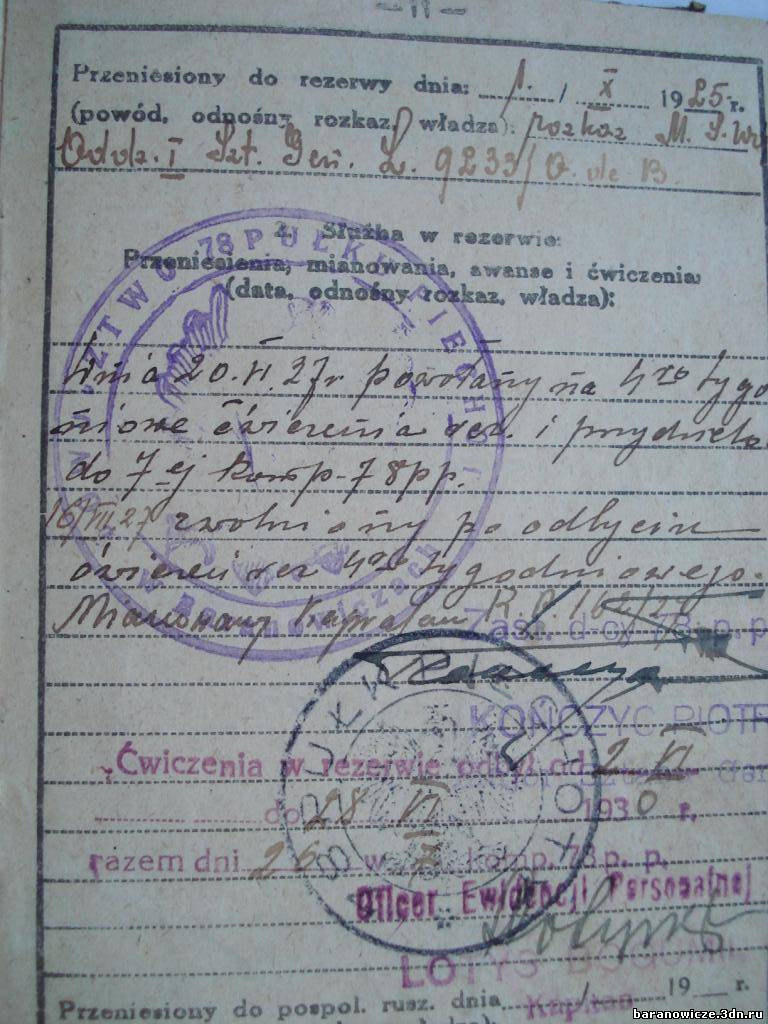 — 11 —
Przeniesiony do rezerwy dnia: 1. / X 1925 r.
(powód, odnośny rozkaz, władza): rozkaz M. S. Wojsk
Oddz. I Szt. Gen. L. 9233/O. de B
2. Służba w rezerwie:
Przeniesienia, mianowania, awanse i ćwiczenia
(data, odnośny rozkaz, władza):
Dnia 20.VI.27r powołany na 4ro tygo-
dniowe ćwiczenia rez. i przydziel.
do 7-ej komp. 78pp.
16/VII 27 zwolniony po odbyciu
ćwiczeń rez 4ro tygodniowego.
Mianowany kapralem R.
Zast. d-cy 78 p. p.
KOŃCZYC PIOTR
Ćwiczenia w rezerwie odbył od 2 VI
do 28 VI 1930 r.
razem dni 26 w 7 komp. 78 p. p.
Oficer Ewidencji Personalnej
LOTYS BOGUMIŁ
Kapitan
Przeniesiony do pospol. rusz. dnia / 19 r.
78 PUŁKU PIECHOTY
w Baranowiczach
PIECHOTY
baranowicze.3dn.ru